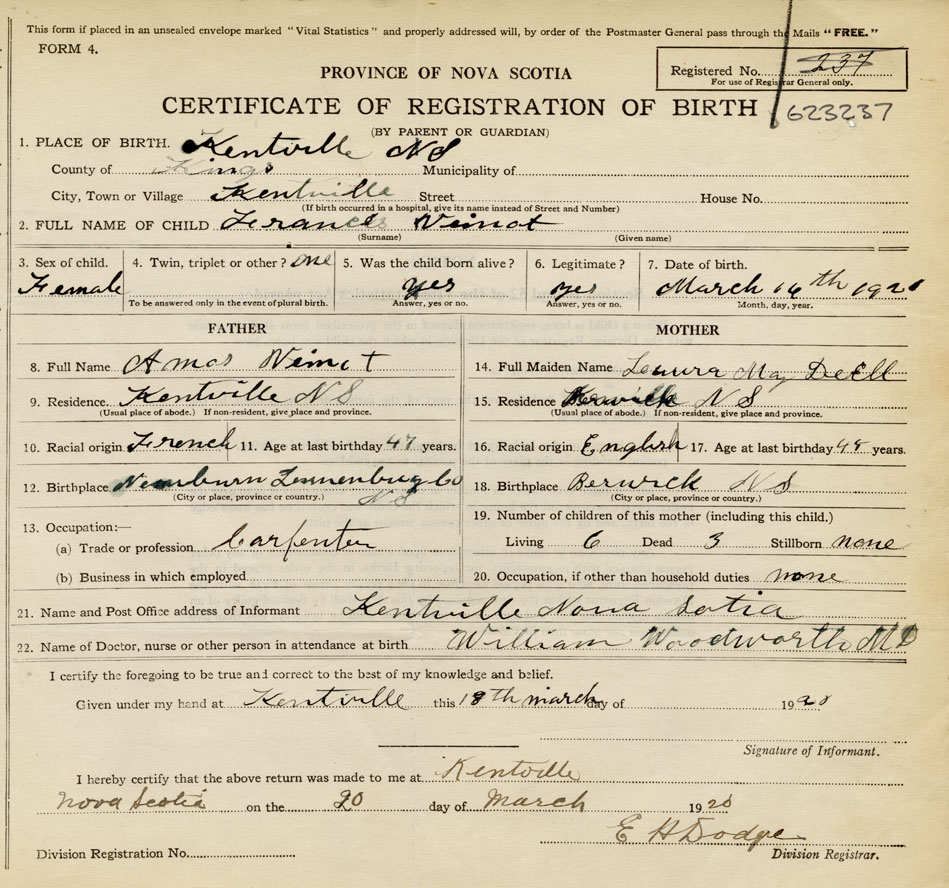 This form if placed in an unsealed envelope marked "Vital Statistics" and properly addressed will, by order of the Postmaster General pass through the Mails "FREE."
FORM 4.
Registered No. 237
For use of Registrar General only.
PROVINCE OF NOVA SCOTIA
CERTIFICATE OF REGISTRATION OF BIRTH
623237
(BY PARENT OR GUARDIAN)
1. PLACE OF BIRTH. Kentville NS
County of Kings Municipality of
City, Town or Village Kentville Street House No.
(If birth occurred in a hospital, give its name instead of Street and Number)
2. FULL NAME OF CHILD Frances Veinot
(Surname) (Given name)
3. Sex of child. 4. Twin, triplet or other? one 5. Was the child born alive? 6. Legitimate? 7. Date of birth.
Female yes yes March 14th 192
To be answered only in the event of plural birth. Answer, yes or no. Answer, yes or no. Month, day, year.
FATHER
8. Full Name Amos Veinot
9. Residence. Kentville NS
(Usual place of abode.) If non-resident, give place and province.
10. Racial origin French 11. Age at last birthday 47 years.
12. Birthplace Lunenburg Co
(City or place, province or country.) NS
13. Occupation:—
(a) Trade or profession Carpenter
(b) Business in which employed
MOTHER
14. Full Maiden Name May
15. Residence NS
(Usual place of abode.) If non-resident, give place and province.
16. Racial origin English 17. Age at last birthday 44 years.
18. Birthplace Berwick NS
(City or place, province or country.)
19. Number of children of this mother (including this child.)
Living 6 Dead 3 Stillborn none
20. Occupation, if other than household duties none
21. Name and Post Office address of Informant Kentville Nova Sotia
22. Name of Doctor, nurse or other person in attendance at birth William Woodworth MD
I certify the foregoing to be true and correct to the best of my knowledge and belief.
Given under my hand at Kentville this 18th march day of 1920
Signature of Informant.
I hereby certify that the above return was made to me at Kentville
Nova Scotia on the 20 day of March 1920
E H Dodge
Division Registration No. Division Registrar.